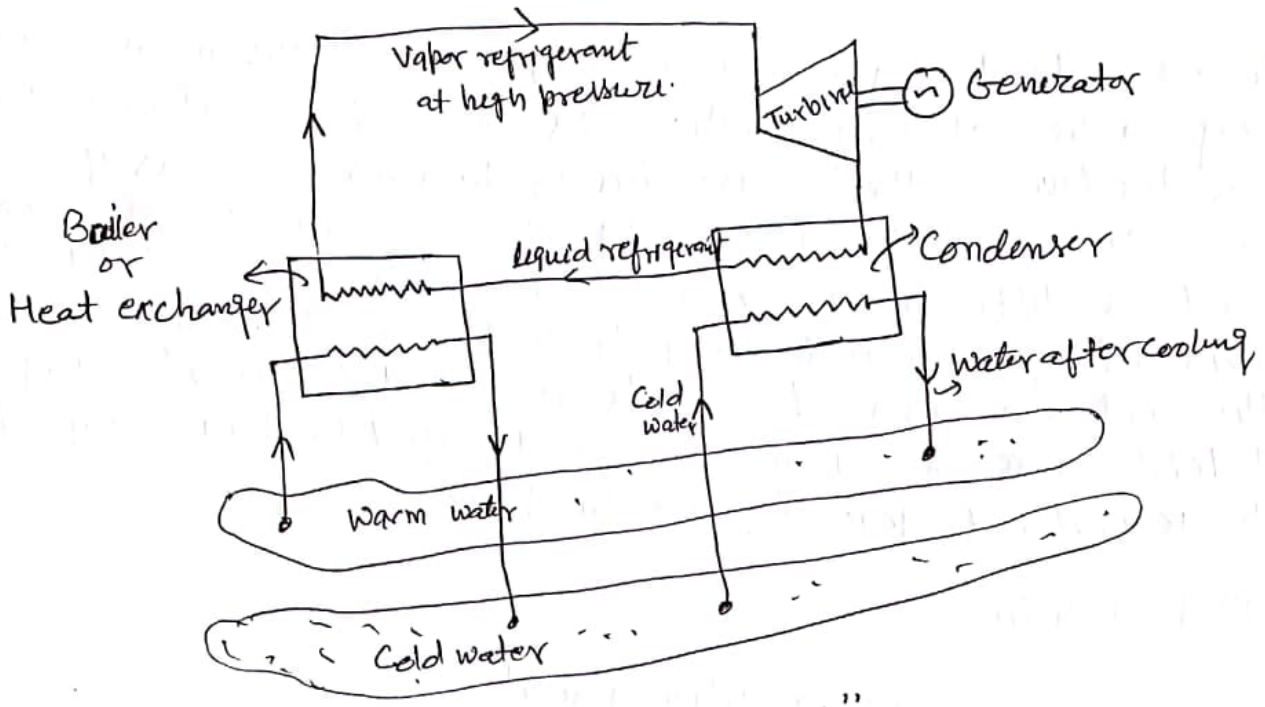 Vapor refrigerant
at high pressure.
Turbine
~
Generator
Boiler
or
Heat exchanger
Liquid refrigerant
Condenser
Cold
water
Water after cooling
Warm water
Cold water
"